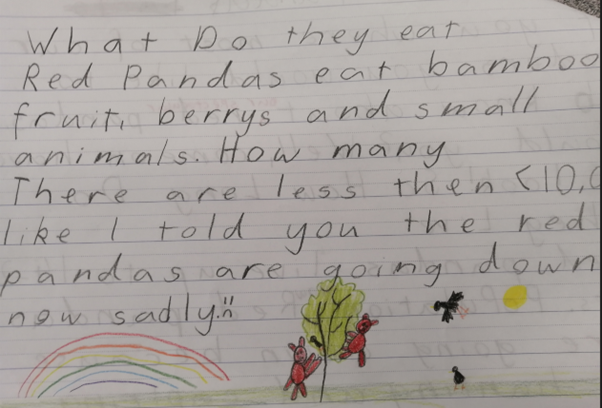 What Do they eat
Red Pandas eat bamboo
fruit, berrys and small
animals. How many
There are less then <10,0
like I told you the red
pandas are going down
now sadly.